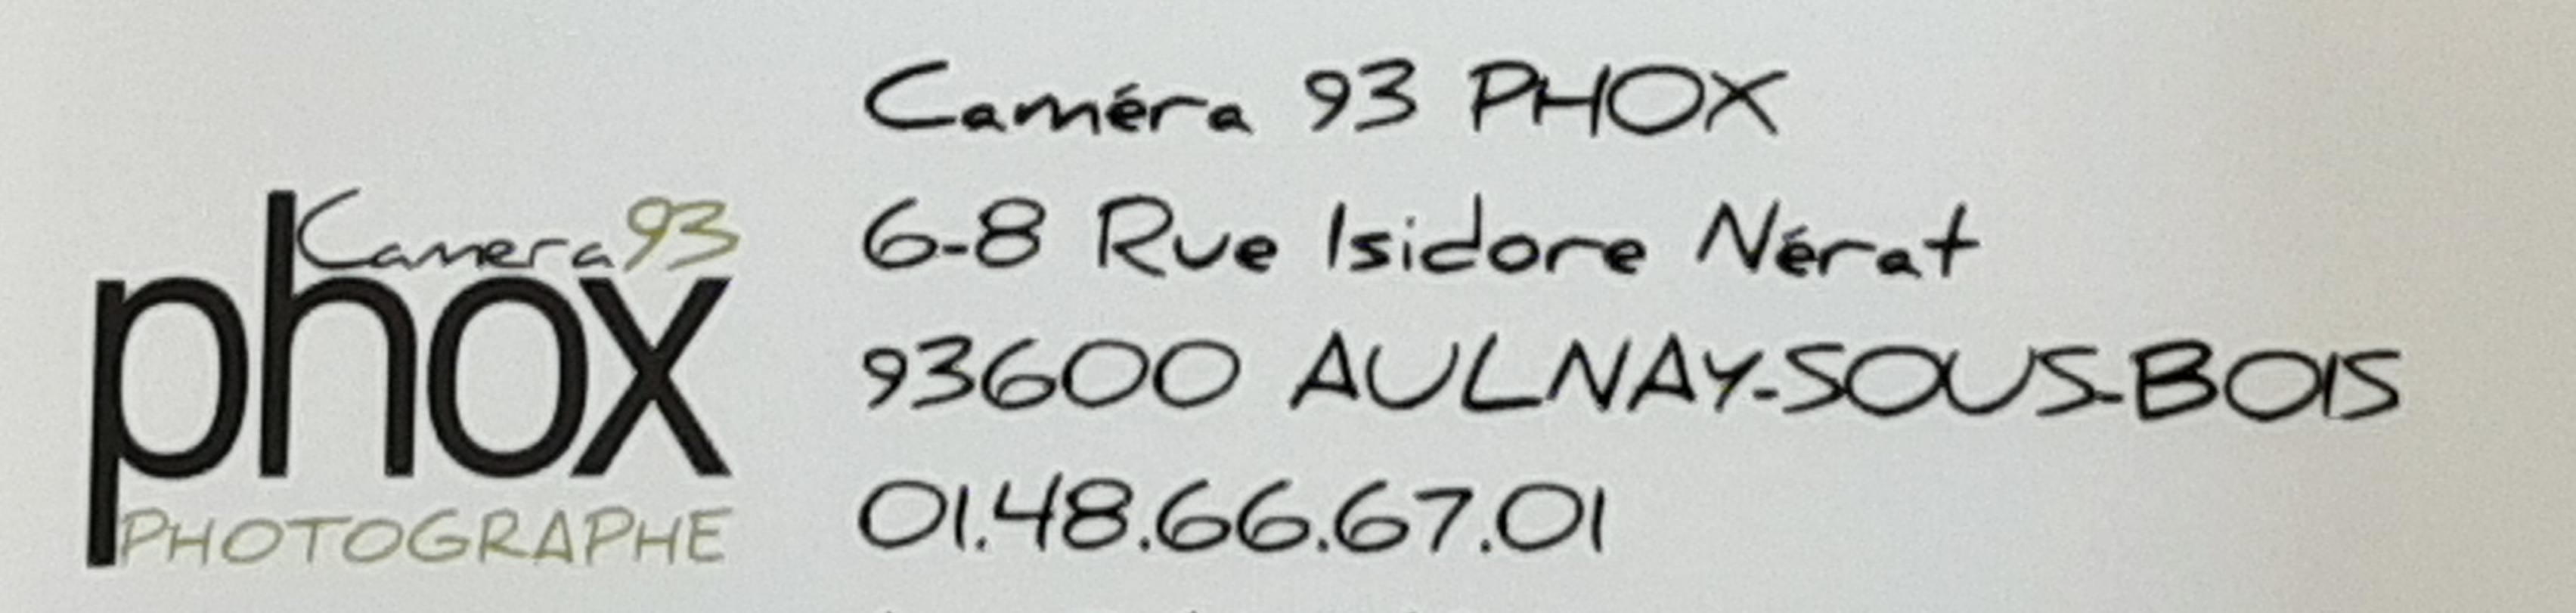 Camera 93
phox
PHOTOGRAPHE
Caméra 93 PHOX
6-8 Rue Isidore Nérat
93600 AULNAY-SOUS-BOIS
01.48.66.67.01